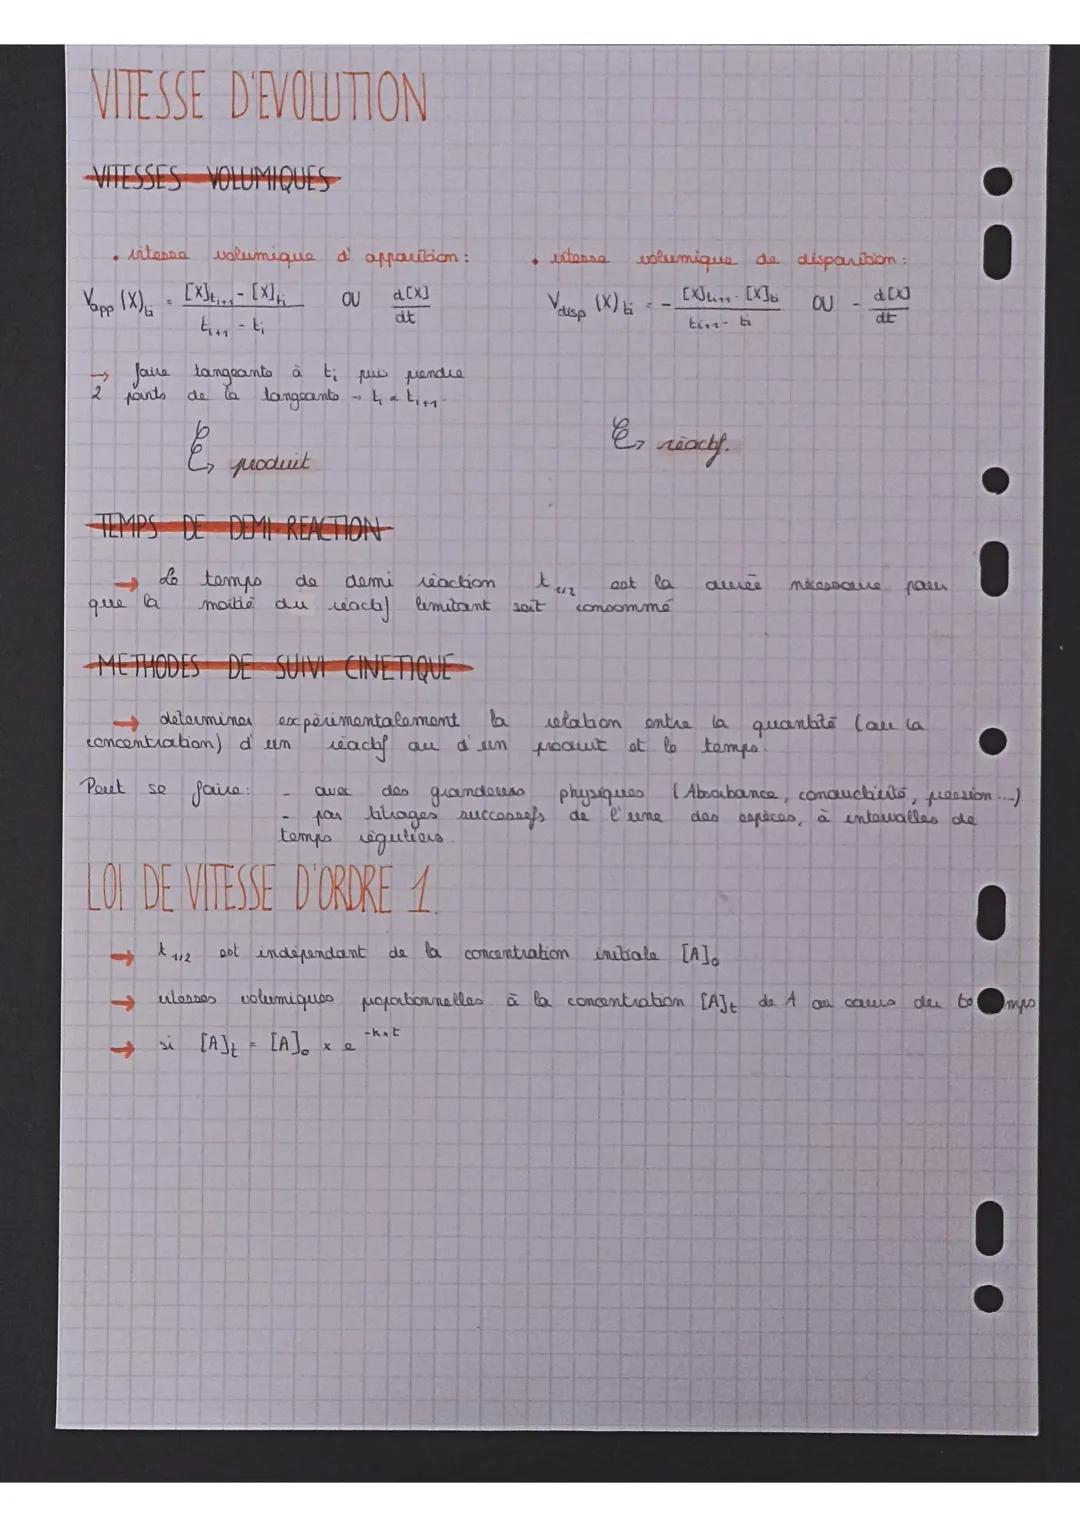 VITESSE D'EVOLUTION
VITESSES VOLUMIQUES
• vitesse volumique d'apparition :
Vapp (X)ti = [X]ti+1 - [X]ti / ti+1 - ti OU d[X] / dt
→ faire tangeante à ti puis prendre
2 points de la tangeante → ti et ti+1.
↳ produit
• vitesse volumique de disparition :
Vdisp (X)ti = - [X]ti+1 - [X]ti / ti+1 - ti OU - d[X] / dt
↳ réactif.
TEMPS DE DEMI-REACTION
→ Le temps de demi réaction t1/2 est la durée nécessaire pour
que la moitié du réactif limitant soit consommé
METHODES DE SUIVI CINETIQUE
→ déterminer expérimentalement la relation entre la quantité (ou la
concentration) d'un réactif ou d'un produit et le temps.
Peut se faire : - avec des grandeurs physiques (Absorbance, conductivité, pression...)
- par titrages successifs de l'une des espèces, à intervalles de
temps réguliers.
LOI DE VITESSE D'ORDRE 1.
→ t1/2 est indépendant de la concentration initiale [A]o
→ vitesses volumiques proportionnelles à la concentration [A]t de A au cours du temps
→ si [A]t = [A]o x e^-k×t